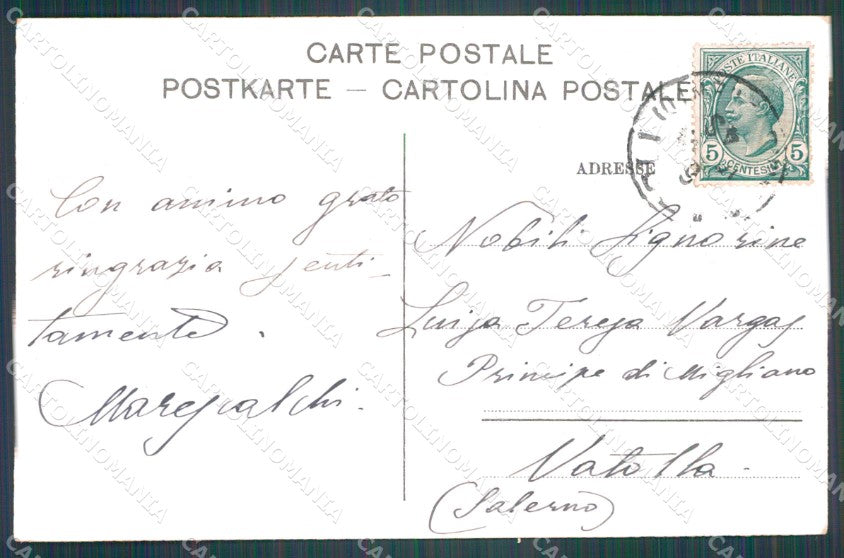 CARTE POSTALE
POSTKARTE — CARTOLINA POSTALE
POSTE ITALIANE
5 CENTESIMI 5
ADRESSE
Con animo grato
ringrazia senti-
tamente.
Marescalchi.
Nobili Signorine
Luisa Teresa Vargas
Principe di Migliano
Vatolla.
(Salerno)
CARTOLINOMANIA